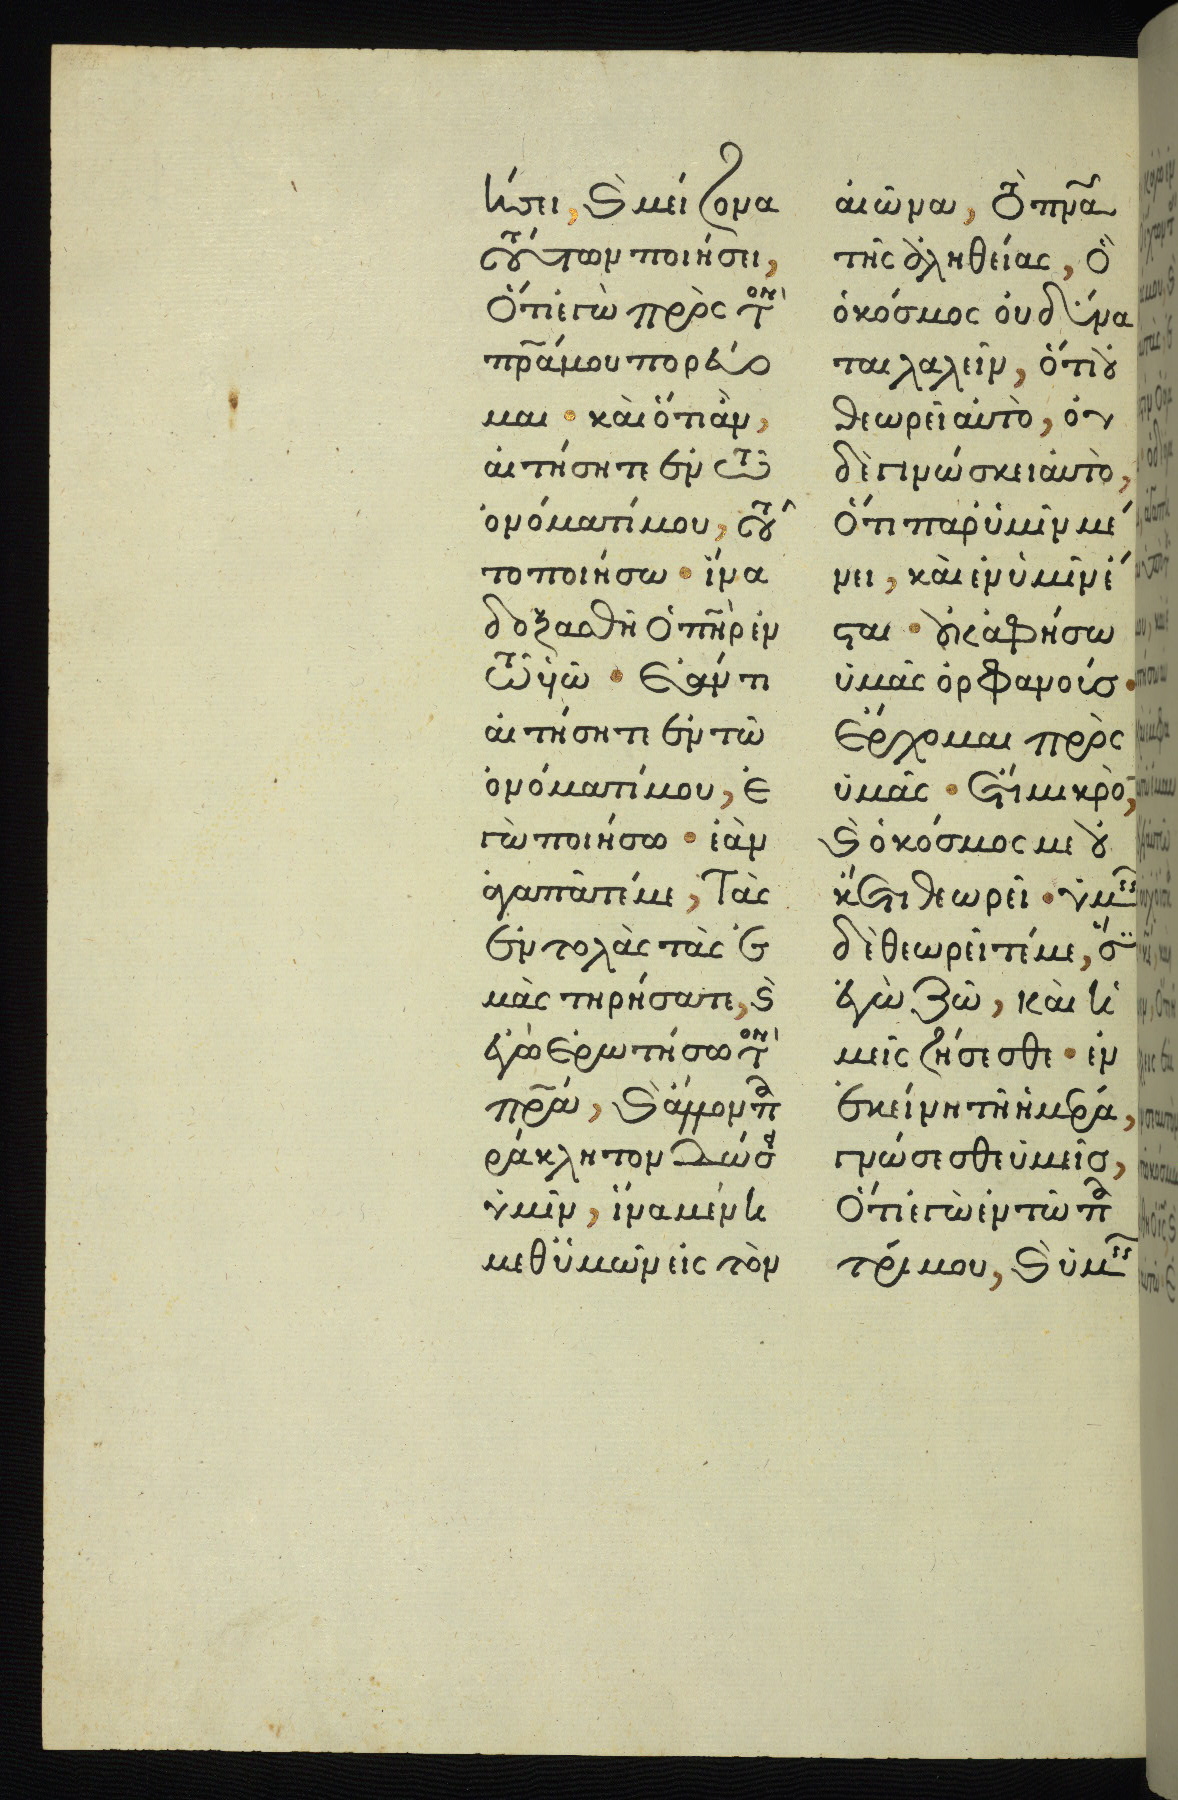 ήσει, ϗ μείζονα
τούτων ποιήσει,
Ὅτι ἐγὼ πρὸς τὸν
πρᾱ́ μου πορεύο
μαι · καὶ ὅτι ἂν,
αἰτήσητε ἐν τῶ
ὀνόματί μου, τοῦ
το ποιήσω · ἵνα
δοξασθῆ ὁ πη̄ρ ἐν
τῶ υἱῶ · Ἐάν τι
αἰτήσητε ἐν τῶ
ὀνόματί μου, ἐ
γὼ ποιήσω · ἐὰν
ἀγαπᾶτέ με, Τὰς
ἐντολὰς τὰς ἐ
μὰς τηρήσατε, ϗ
ἐγὼ ἐρωτήσω τὸν
πρᾱ́, ϗ ἄλλον πα
ράκλητον δώσει
ὑμῖν, ἵνα μένη
μεθ ὑμῶν εἰς τὸν
αἰῶνα, Τὸ πνᾱ
τῆς ἀληθείας, Ὃ
ὁ κόσμος οὐ δύνα
ται λαλεῖν, ὅτι οὐ
θεωρεῖ αὐτὸ, οὐ
δὲ γινώσκει αὐτὸ,
Ὅτι παρ ὑμῖν μέ
νει, καὶ ἐν ὑμῖν έ
σται · οὐκ ἀφήσω
ὑμᾶς ὀρφανούς ·
Ἔρχομαι πρὸς
ὑμᾶς · Ἔτι μικρὸ,
ϗ ὁ κόσμος με οὐ
κ ἔτι θεωρεῖ · ὑμεῖς
δὲ θεωρεῖτέ με, ὅτι
ἐγὼ ζῶ, καὶ ὑ
μεῖς ζήσεσθε · ἐν
ἐκείνη τῆ ἡμέρα,
γνώσεσθε ὑμεῖς,
Ὅτι ἐγὼ ἐν τῶ πα
τρί μου, ϗ ὑμεῖς